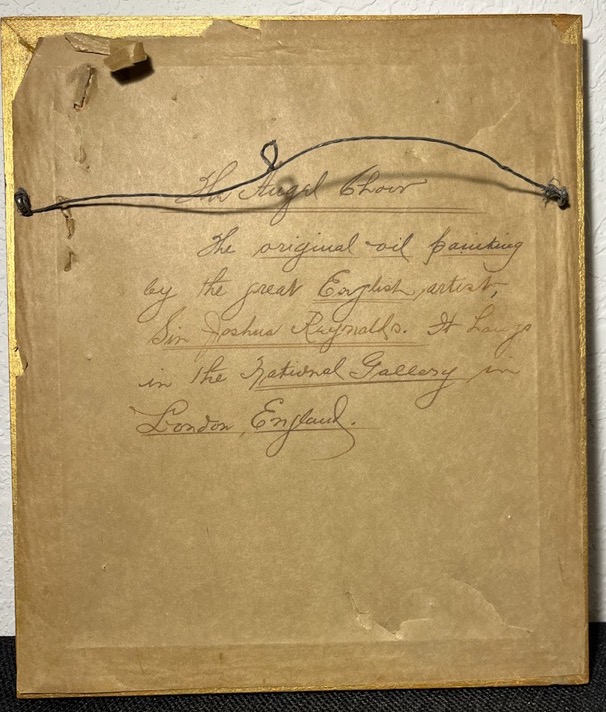 The Angel Choir
The original oil painting
by the great English artist,
Sir Joshua Raynolds. It hangs
in the National Gallery in
London, England.